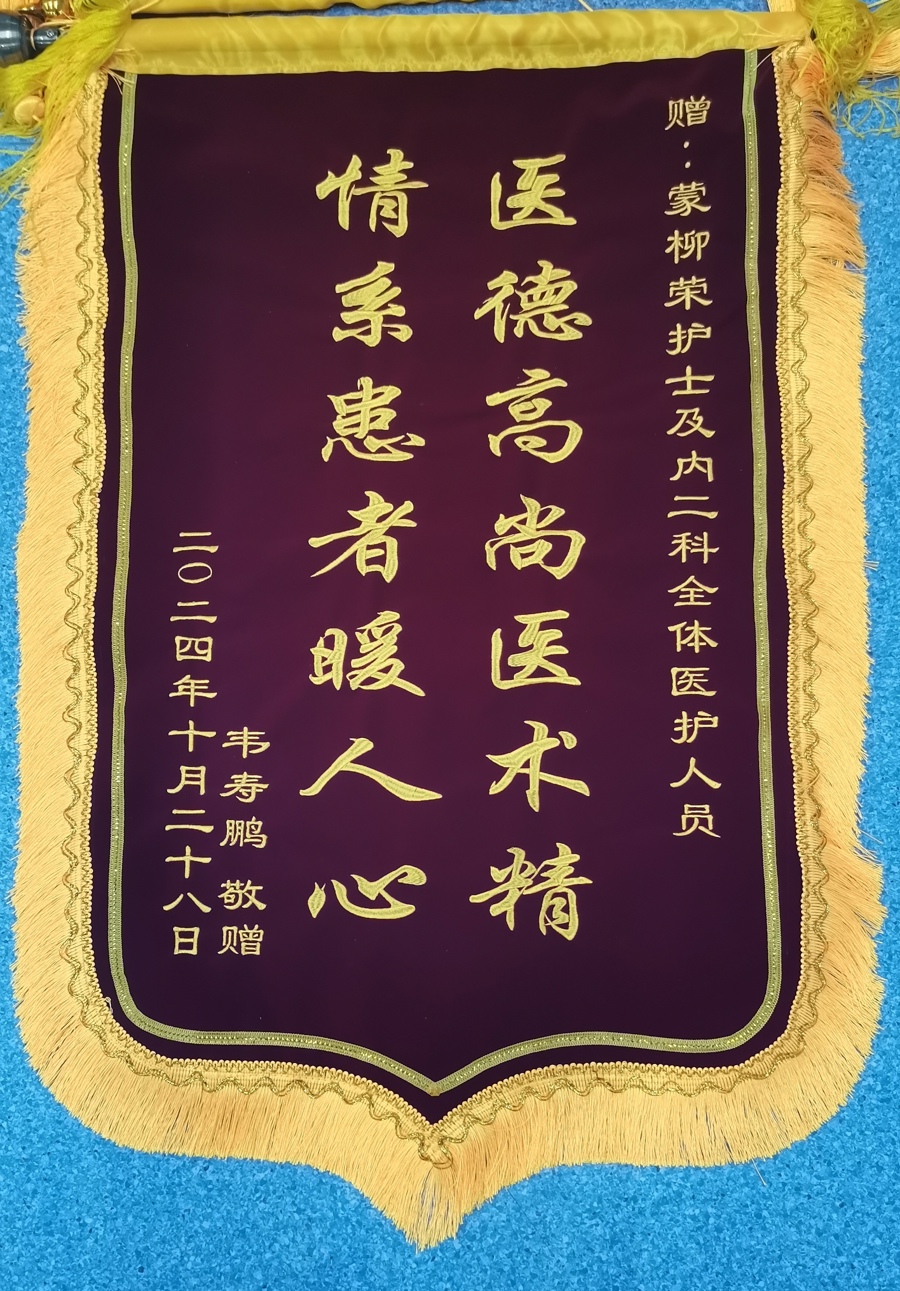 赠：蒙柳荣护士及内二科全体医护人员
医德高尚医术精
情系患者暖人心
韦寿鹏 敬赠
二〇二四年十月二十八日